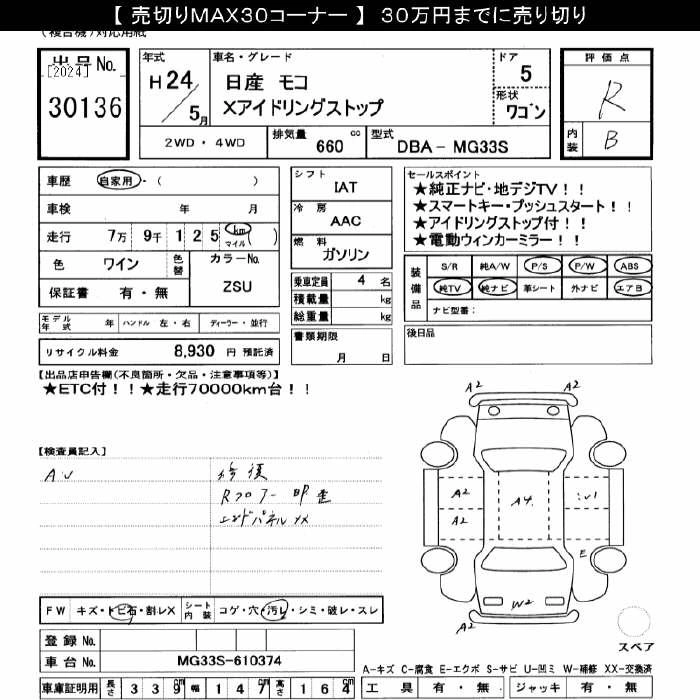 【 売切りMAX30コーナー 】 30万円までに売り切り
(複合機)対応用紙
出品No.
[2024]
30136
年式
H 24 / 5 月
車名・グレード
日産 モコ
Xアイドリングストップ
ドア
5
形状
ワゴン
評価点
R
内装
B
2WD・4WD
排気量
660 cc
型式
DBA- MG33S
車歴
自家用・( )
車検 年 月
走行 7万 9千 1 2 5 km マイル ( )
色 ワイン
色替
カラーNo.
ZSU
保証書 有・無
シフト
IAT
冷房
AAC
燃料
ガソリン
乗車定員 4 名
積載量 kg
総重量 kg
書類期限
月 日
セールスポイント
★純正ナビ・地デジTV！！
★スマートキー・プッシュスタート！！
★アイドリングストップ付！！
★電動ウィンカーミラー！！
装備品
S/R 純A/W P/S P/W ABS
純TV 純ナビ 革シート 外ナビ エアB
ナビ型番：
後日品
モデル年式 年 ハンドル 左・右 ディーラー・並行
リサイクル料金 8,930 円 預託済
【出品店申告欄(不良箇所・欠品・注意事項等)】
★ETC付！！★走行70000km台！！
【検査員記入】
修復
Rフロアー
エンドパネル XX
A2 A2
A2 A4
A2
E
W2
A2
スペア
FW キズ・トビ石・割レX
シート内装 コゲ・穴・汚レ・シミ・破レ・スレ
登録 No.
車台 No. MG33S-610374
車庫証明用 長さ 3 3 9 cm 幅 1 4 7 cm 高さ 1 6 4 cm
A-キズ C-腐食 E-エクボ S-サビ U-凹ミ W-補修 XX-交換済
工具 有・無 ジャッキ 有・無